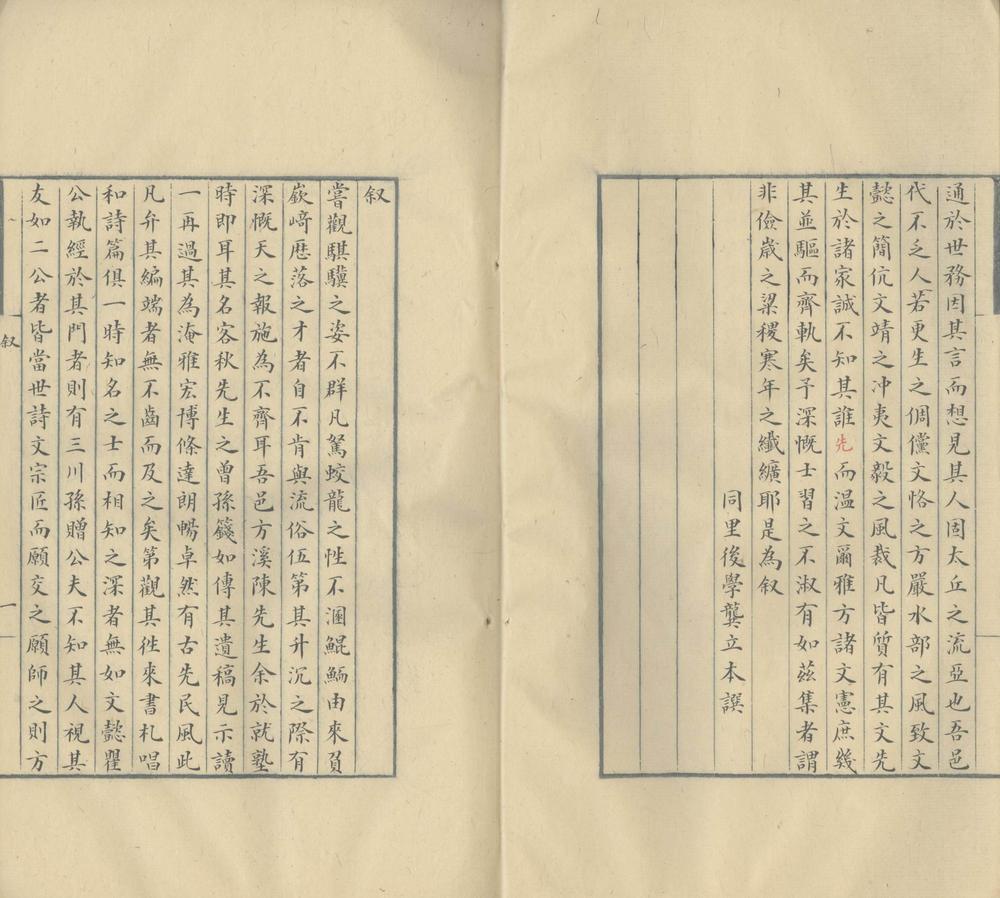 通於世務因其言而想見其人固太丘之流亞也吾邑
代不乏人若更生之倜儻文恪之方嚴水部之風致文
懿之簡伉文靖之冲夷文毅之風裁凡皆質有其文先
生於諸家誠不知其誰先而溫文爾雅方諸文憲庶幾
其並驅而齊軌矣予深慨士習之不淑有如茲集者謂
非儉歲之粱稷寒年之纖纊耶是為叙
同里後學龔立本譔
叙
嘗觀騏驥之姿不群凡駑蛟龍之性不溷鯤鰤由來負
嶔﨑厯落之才者自不肯與流俗伍第其升沉之際有
深慨天之報施為不齊耳吾邑方溪陳先生余於就塾
時即耳其名客秋先生之曾孫籛如傳其遺稿見示讀
一再過其為淹雅宏博條達朗暢卓然有古先民風此
凡弁其編端者無不齒而及之矣第觀其徃來書札唱
和詩篇俱一時知名之士而相知之深者無如文懿瞿
公執經於其門者則有三川孫贈公夫不知其人視其
友如二公者皆當世詩文宗匠而願交之願師之則方
叙
一